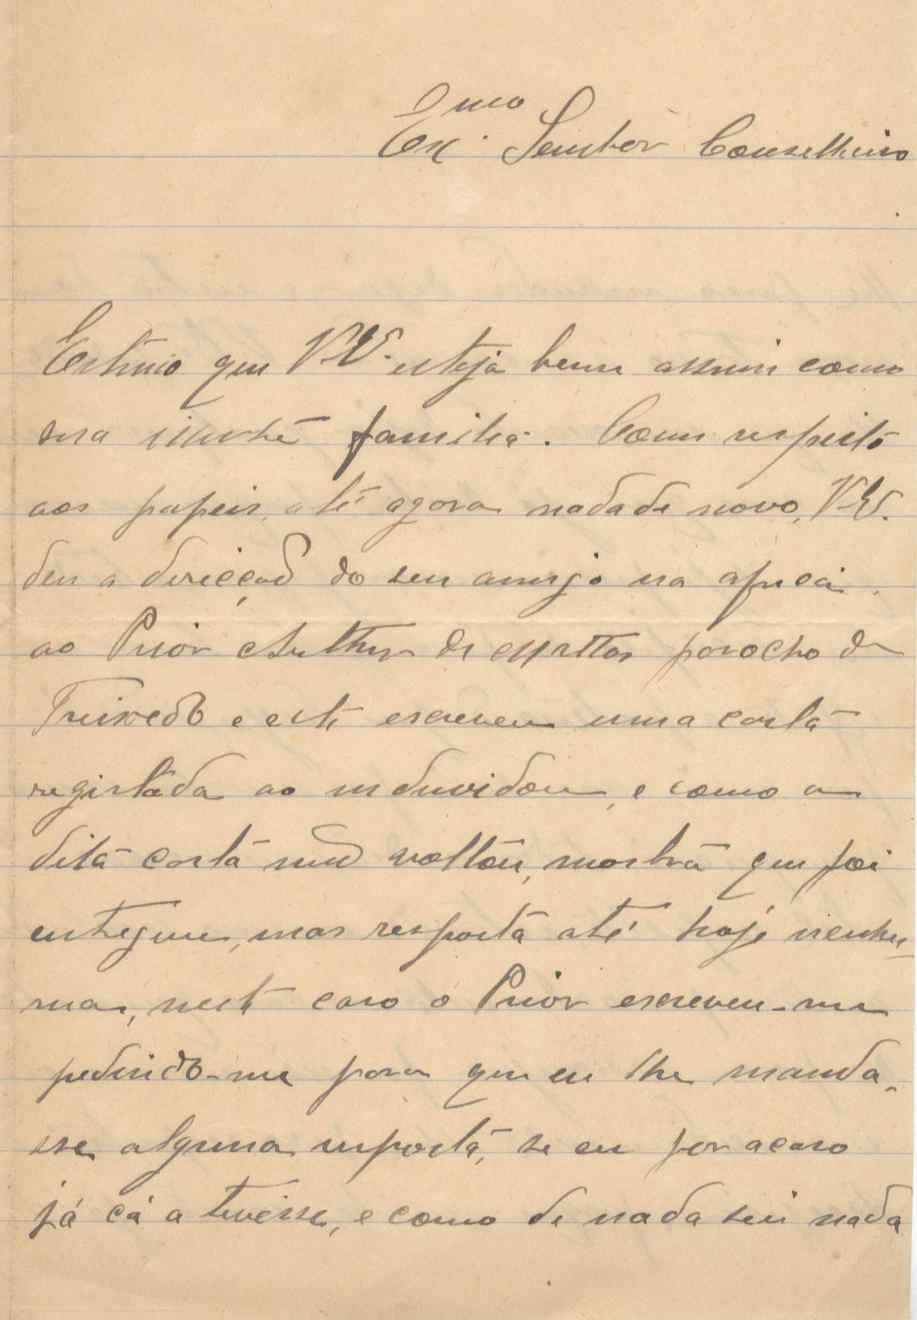 Ex.mo Senhor Conselheiro
Estimo que V.E. esteja bem assim como
sua illustre familia. Com respeito
aos papeis, até agora nada de novo, V.E.
deu a direcçaõ do seu amigo na africa,
ao Prior Arthur de Mattos parocho de
Treixedo e este escreveu uma carta
registada ao individou, e como a
dita carta naõ voltou, mostra que foi
entregue, mas resposta até hoje nenhu-
ma, neste caso o Prior escreveu-me
pedindo-me para que eu lhe manda-
sse alguma resposta, se eu por acaso
já cá a tivesse, e como de nada sei nada